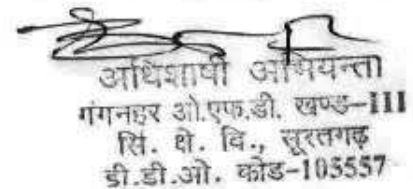 अधिशाषी अभियन्ता
गंगनहर ओ.एफ.डी. खण्ड-III
सिं. क्षे. वि., सूरतगढ़
डी.डी.ओ. कोड-105557